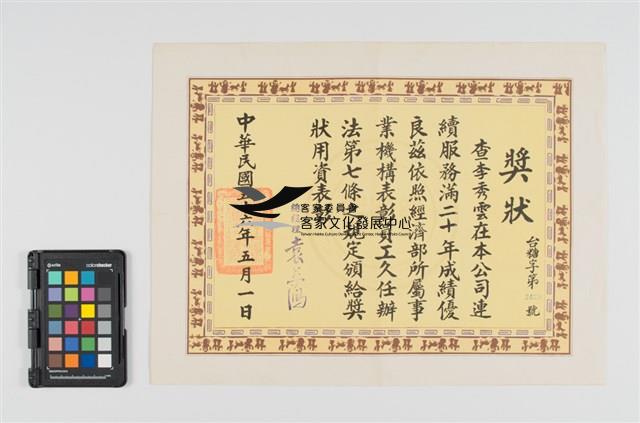 獎狀
台糖字第 號
查李秀雲在本公司連
續服務滿二十年成績優
良茲依照經濟部所屬事
業機構表彰員工久任辦
法第七條之規定頒給獎
狀用資表
總經理
中華民國五十六年五月一日
客家委員會
客家文化發展中心
colorchecker